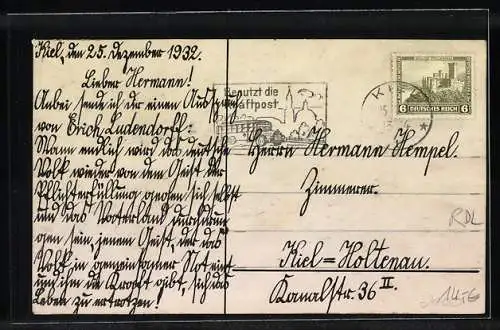 Kiel, den 25. Dezember 1932.
Lieber Hermann!
Anbei sende ich dir einen Ausspruch
von Erich Ludendorff:
Wann endlich wird das deutsche
Volk wieder von dem Geist der
Pflichterfüllung gegen sich selbst
und das Vaterland durchdrun=
gen sein, jenem Geist, der das
Volk in gemeinsamer Not eint
und ihm die Kraft gibt, sich das
Leben zu ertrotzen!
Benutzt die
Luftpost
KIEL
DEUTSCHES REICH
6 6
Herrn Hermann Hempel.
Zimmerer.
Kiel=Holtenau.
Kanalstr. 36 II.
RDL
14,-€